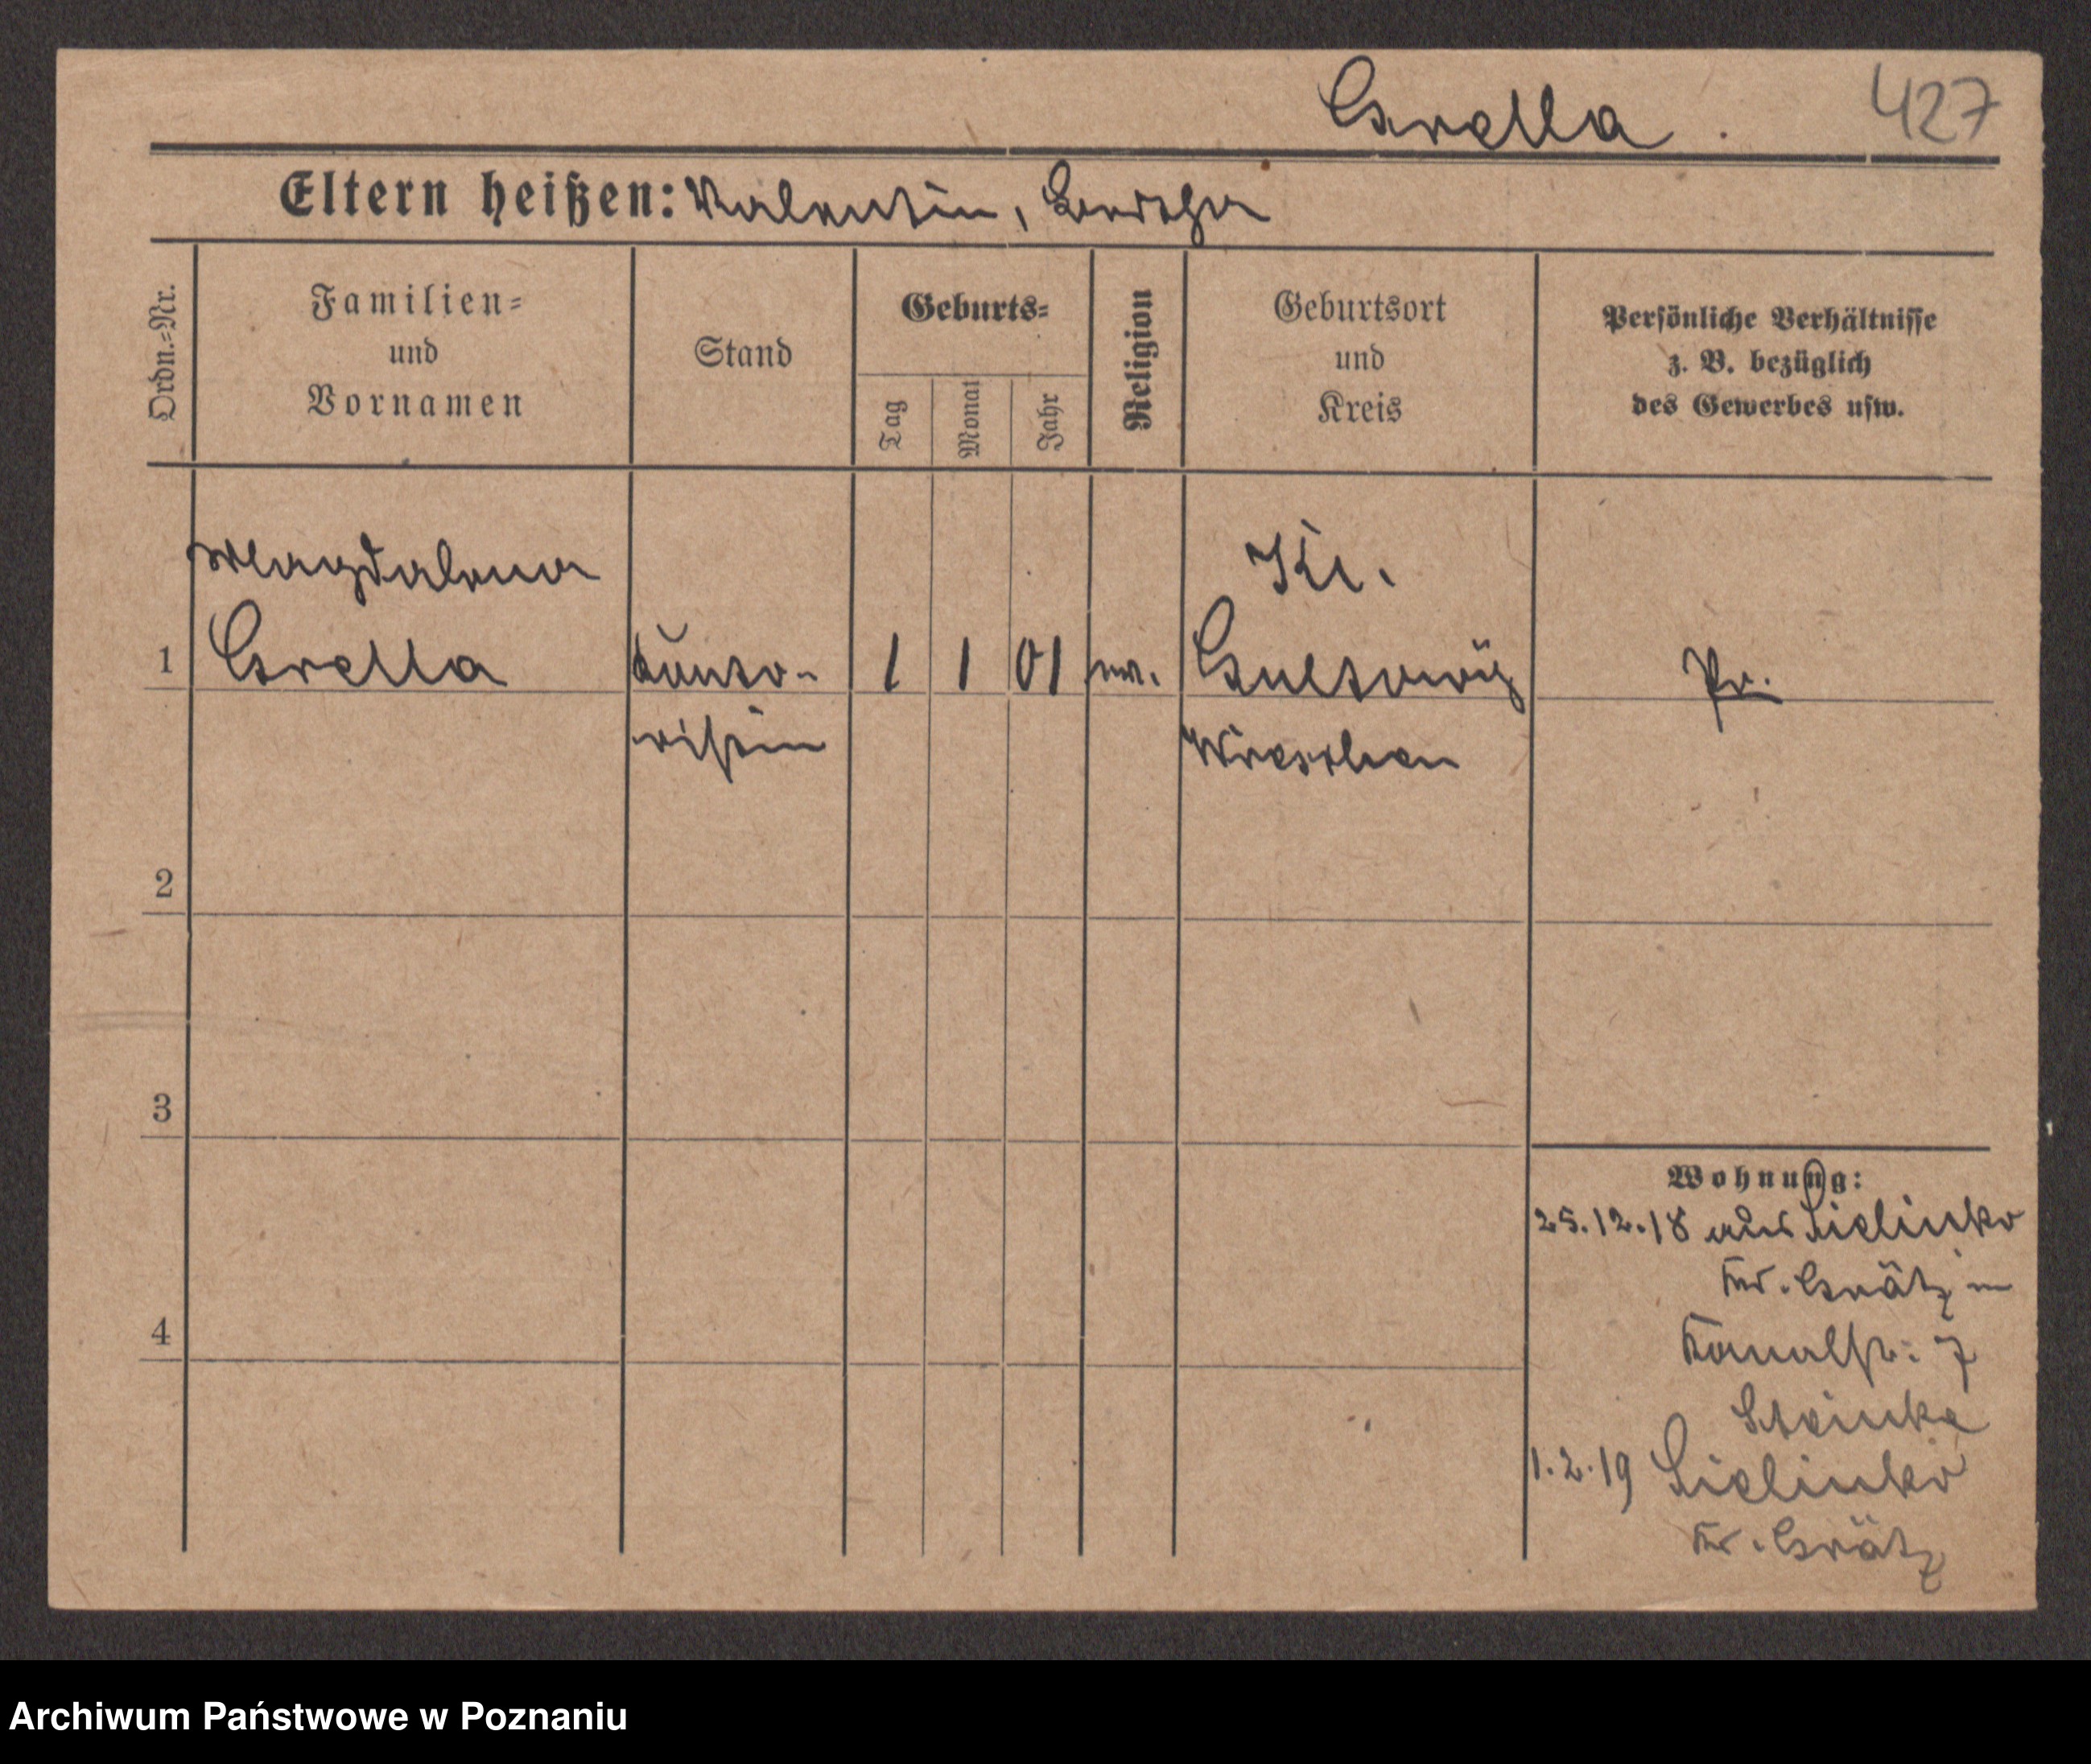 Grella. 427
Eltern heißen: Valentin,
Ordn.=Nr.
Familien=
und
Vornamen
Stand
Geburts=
Tag
Monat
Jahr
Religion
Geburtsort
und
Kreis
Persönliche Verhältnisse
z. B. bezüglich
des Gewerbes usw.
Magdalena
Kl.
1 Grella Konto- 1 1 01 Gultowy Pr.
ristin Wreschen
2
3
Wohnung:
25.12.18 aus Sielinko
Kr. Grätz in
4
Kanalstr: 7
Steinke
1.2.19 Sielinko
Kr. Grätz
Archiwum Państwowe w Poznaniu